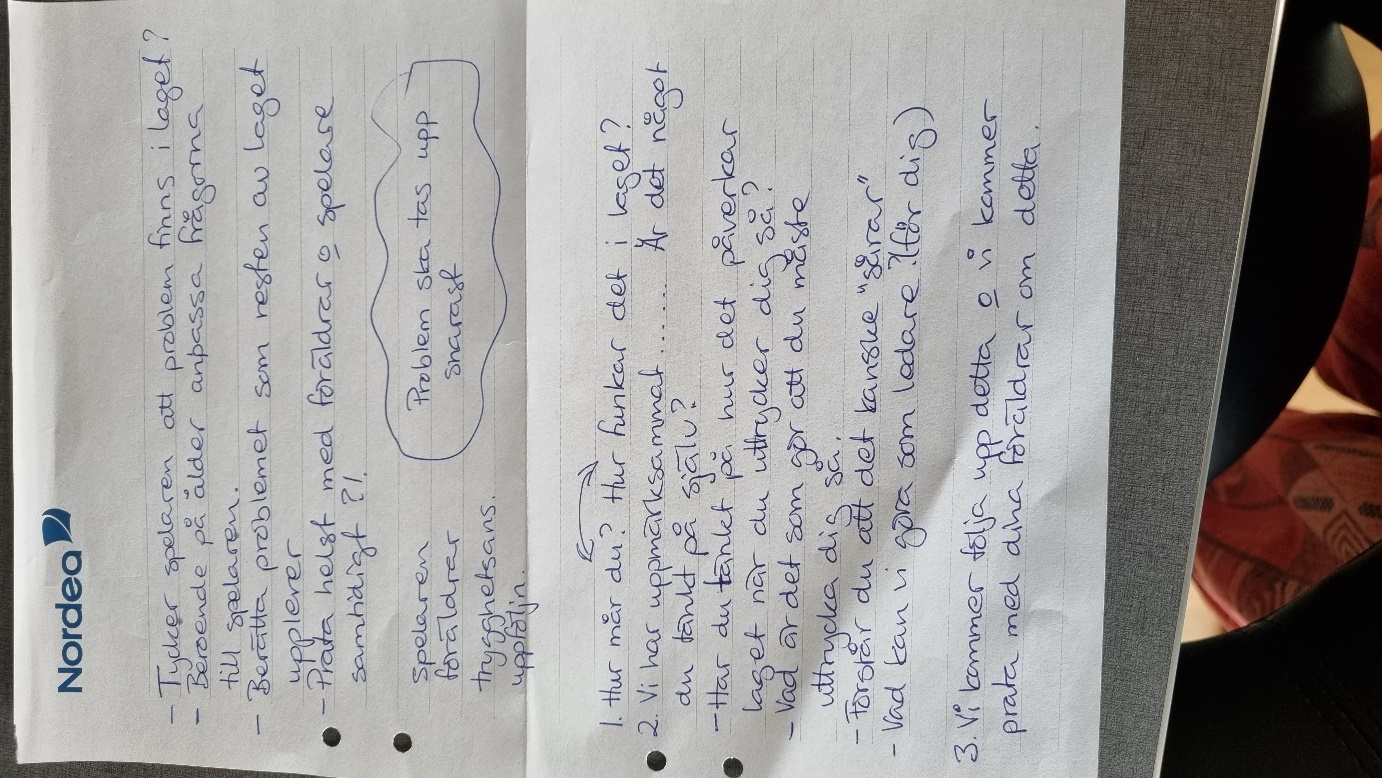 Nordea
- Tycker spelaren att problem finns i laget?
- Beroende på ålder anpassa frågorna
till spelaren.
- Berätta problemet som resten av laget
upplever
- Prata helst med föräldrar o spelare
samtidigt ?!
Problem ska tas upp
snarast
Spelaren
föräldrar
trygghetsans.
uppföljn.
1. Hur mår du? Hur funkar det i laget?
2. Vi har uppmärksammat...... Är det något
du tänkt på själv?
- Har du tänkt på hur det påverkar
laget när du uttrycker dig så?
- Vad är det som gör att du måste
uttrycka dig så.
- Förstår du att det kanske "sårar"
- Vad kan vi göra som ledare? (för dig)
3. Vi kommer följa upp detta o vi kommer
prata med dina föräldrar om detta.